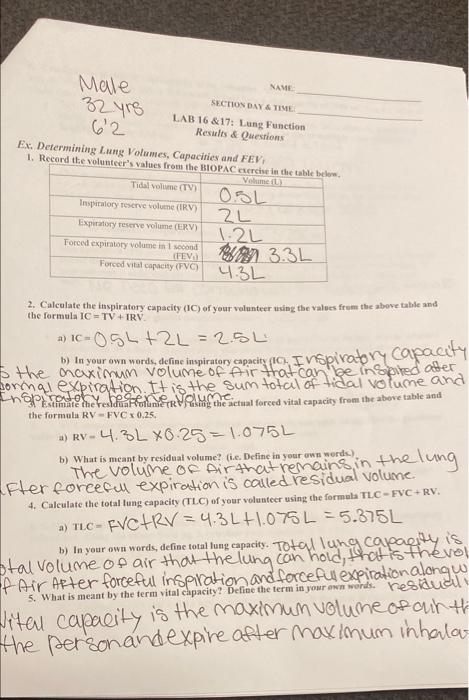 Male
32 yrs
6'2
NAME:
SECTION DAY & TIME:
LAB 16 &17: Lung Function
Results & Questions
Ex. Determining Lung Volumes, Capacities and FEV₁
1. Record the volunteer's values from the BIOPAC exercise in the table below.
Volume (L)
Tidal volume (TV) 0.5L
Inspiratory reserve volume (IRV) 2L
Expiratory reserve volume (ERV) 1.2L
Forced expiratory volume in 1 second (FEV₁) 3.3L
Forced vital capacity (FVC) 4.3L
2. Calculate the inspiratory capacity (IC) of your volunteer using the values from the above table and
the formula IC = TV + IRV.
a) IC = 05L + 2L = 2.5L
b) In your own words, define inspiratory capacity (IC). Inspiratory capacity
s the maximum volume of Air that can be inspired after
normal expiration. It is the sum total of tidal volume and
Inspiratory reserve volume.
3. Estimate the residual volume (RV) using the actual forced vital capacity from the above table and
the formula RV = FVC x 0.25.
a) RV = 4.3L x 0.25 = 1.075L
b) What is meant by residual volume? (i.e. Define in your own words.)
The volume of Air that remains in the lung
After forceful expiration is called residual volume.
4. Calculate the total lung capacity (TLC) of your volunteer using the formula TLC = FVC + RV.
a) TLC = FVC + RV = 4.3L + 1.075L = 5.375L
b) In your own words, define total lung capacity. Total lung capacity is
otal volume of air that the lung can hold, that is the vol
f Air After forceful inspiration and forceful expiration along w
5. What is meant by the term vital capacity? Define the term in your own words. residual
Vital capacity is the maximum volume of air th
the person and expire after maximum inhala